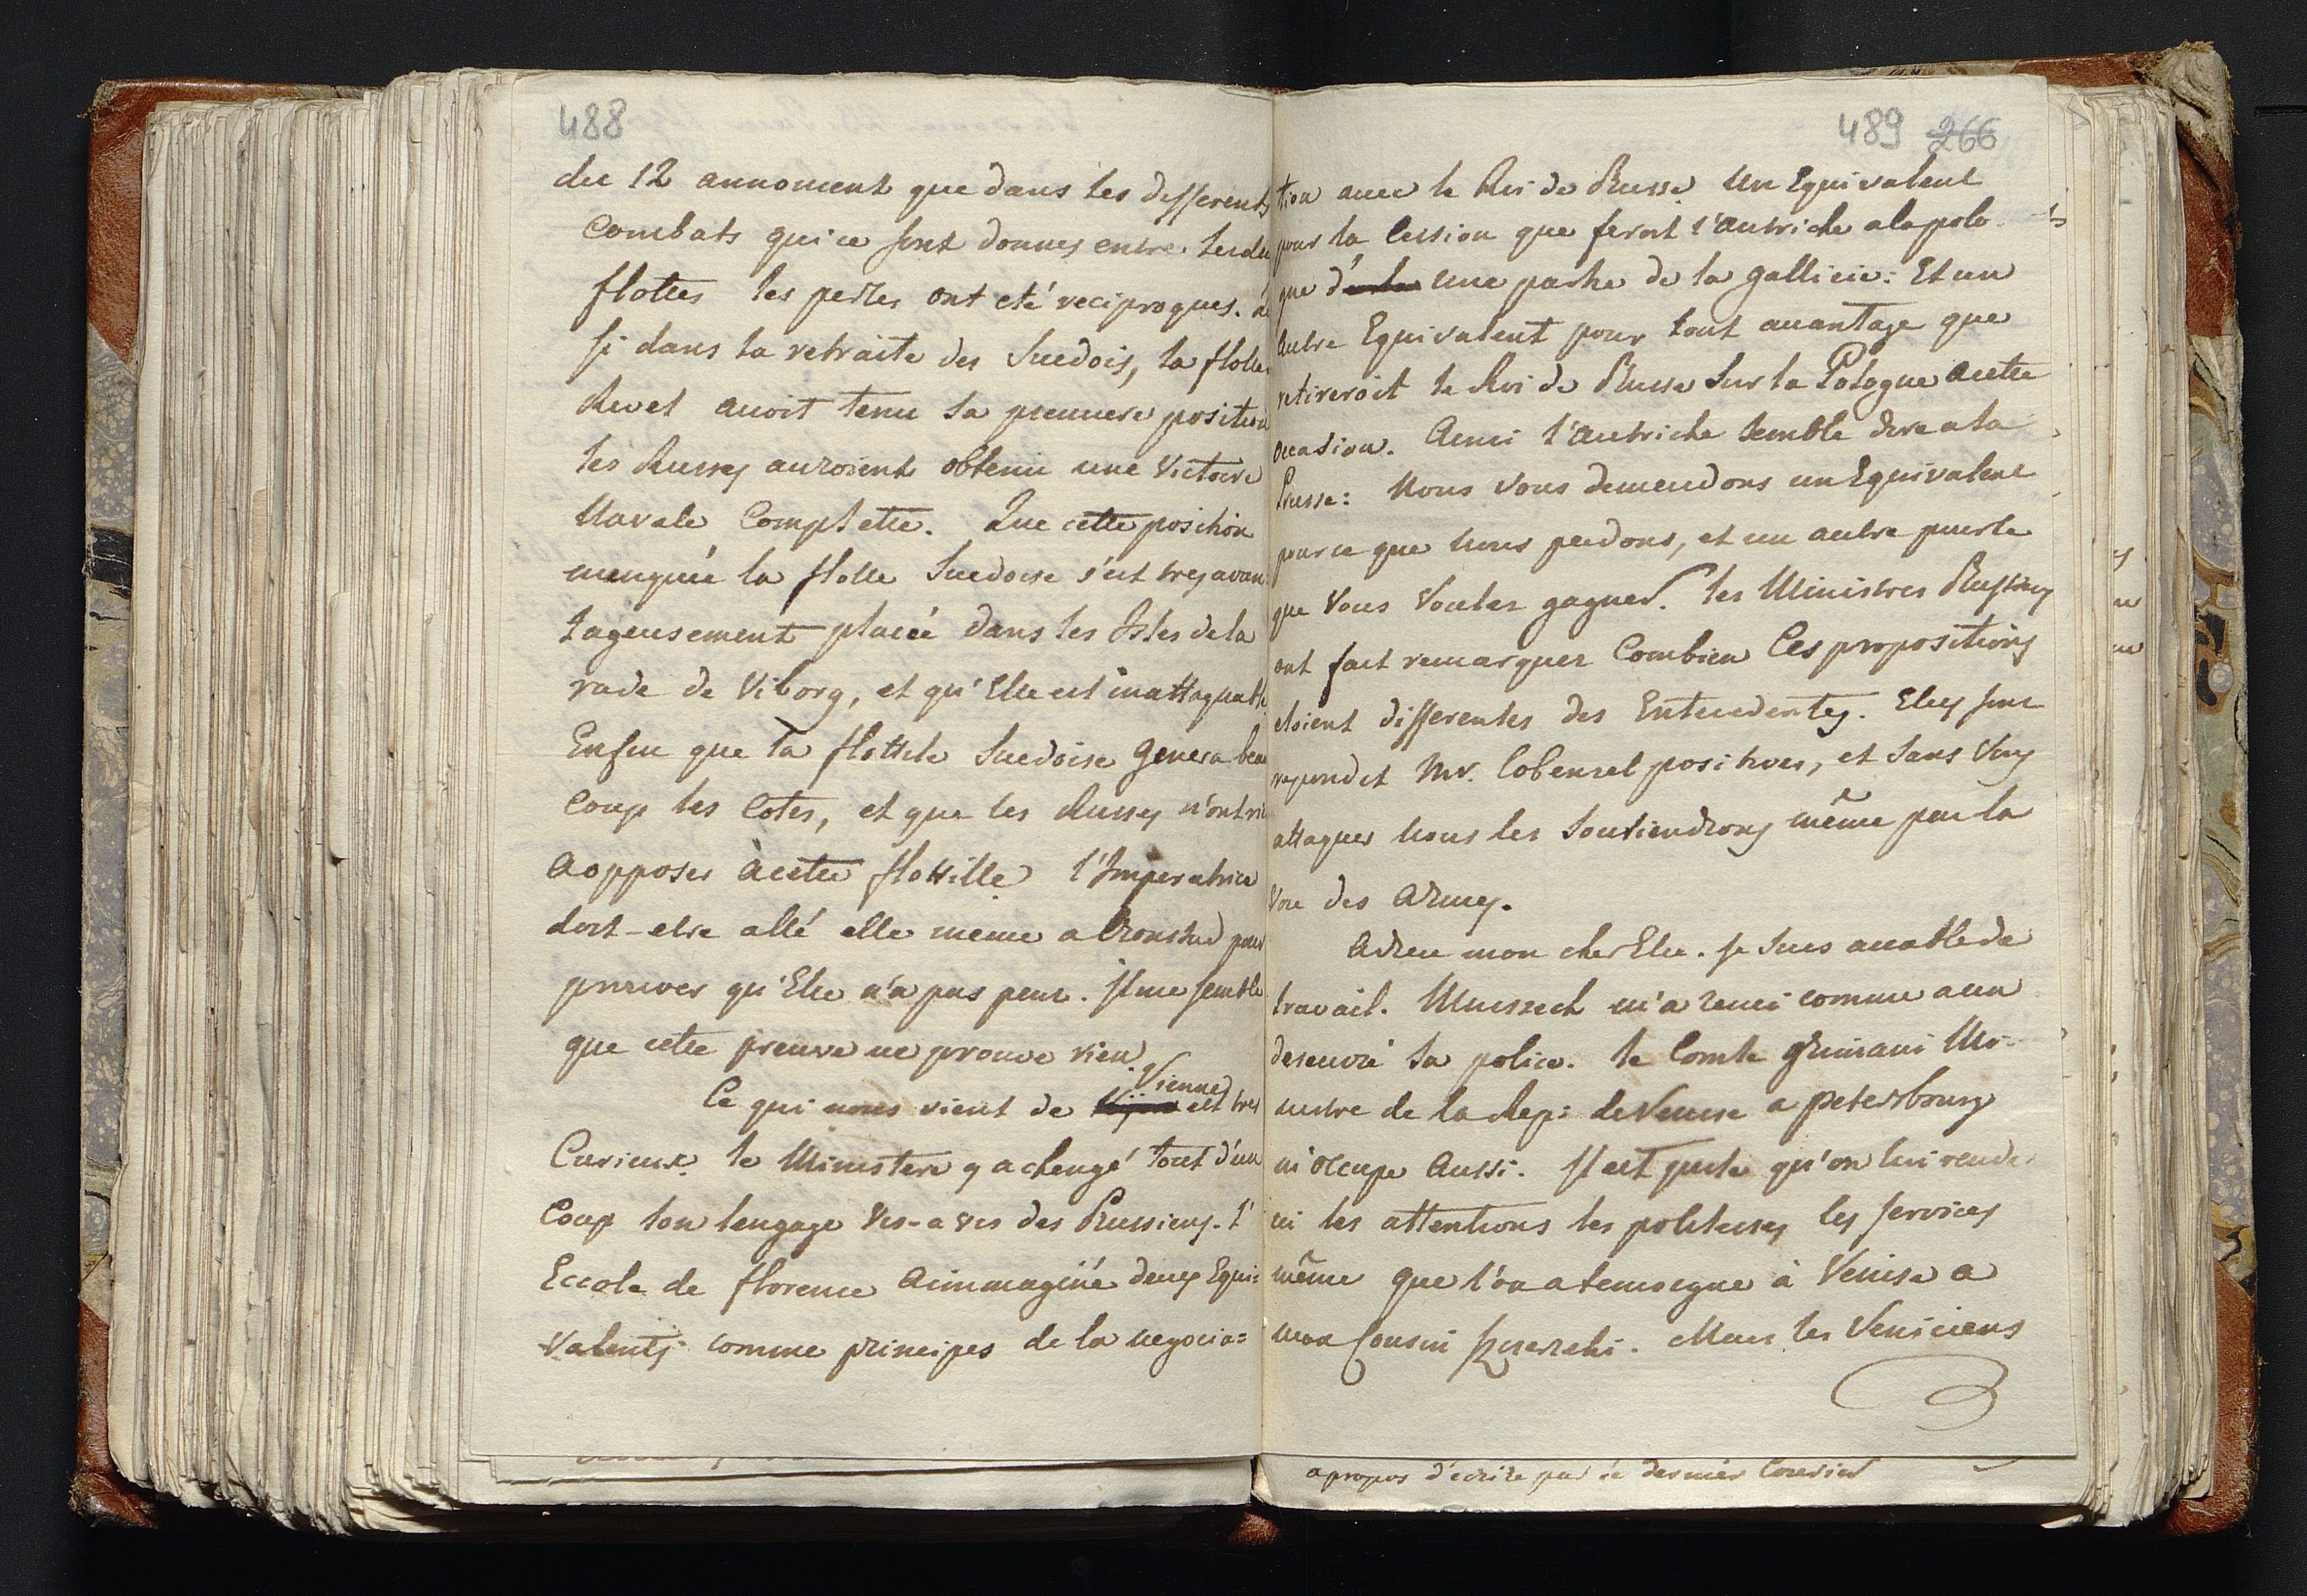 488
du 12 annoncent que dans les differents
Combats qui ce sont donnes entre les deu
flottes les pertes ont eté reciproques.
si dans la retraite des Suedois, la flotte
Revel avoit tenu sa premiere position
les Russes auroient obtenu une Victoire
Navale Complette. Que cette position
menquée la flotte Suedoise s'est tres avan:
tageusement placée dans les Isles de la
rade de Viborg, et qu'Elle est inattaquable
Enfin que la flottile Suedoise genera beau
coup les Cotes, et que les Russes n'ont rie
a opposer à cette flottille l'Imperatrice
doit-etre allé elle meme a Cronstad pour
prouver qu'Elle n'a pas peur. Il me semble
que cette preuve ne prouve rien.
Vienne
Ce qui nous vient de est tres
Curieux. le Ministere y a changé tout d'un
Coup son lengage vis-a vis des Prussiens. L'
Eccole de florence a immaginé deux Equi=
valents comme principes de la negocia=
489 266
tion avec le Roi de Prusse. Un Equivalent
pour la Cession que feroit l'Autriche a la polo-
que d' une partie de la gallicie: Et un
Autre Equivalent pour tout avantage que
retireroit le Roi de Prusse Sur la Pologne a cette
occasion. Ainsi l'Autriche semble dire a la
Prusse: Nous vous demendons un Equivalent
pour ce que nous perdons, et un autre pour le
que Vous Voulez gagner. les Ministres Prussiens
ont fait remarquer Combien Ces propositions
etoient differentes des Entecedentes. Elles sont
repondit Mr. Cobenzel positives, et sans Vous
attaquer nous les soutiendrons même par la
Voie des Armes.
Adieu mon cher Elie. Je suis accablé de
travail. m'a remis comme a un
deseuvré sa police. le Comte Grimani Mi-
nistre de la Rep: de Venise a petersbourg
m'occupe Aussi. Il est juste qu'on lui rende
ici les attentions les politesses les services
même que l'on a temoigne à Venise a
mon Cousin . Mais les Veniciens
a propos d'ecrire par le dernier Courier